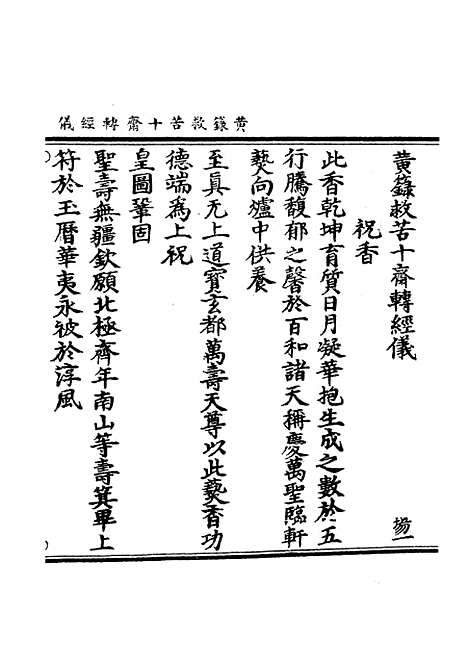 黃籙救苦十齋轉經儀
黃籙救苦十齋轉經儀 塲一
祝香
此香乾坤育質日月凝華抱生成之數於五
行騰馥郁之馨於百和諸天稱慶萬聖臨軒
爇向爐中供養
至眞无上道寳玄都萬壽天尊以此爇香功
德端為上祝
皇圖鞏固
聖壽無疆欽願北極齊年南山等壽箕畢上
符於玉曆華夷永被於淳風